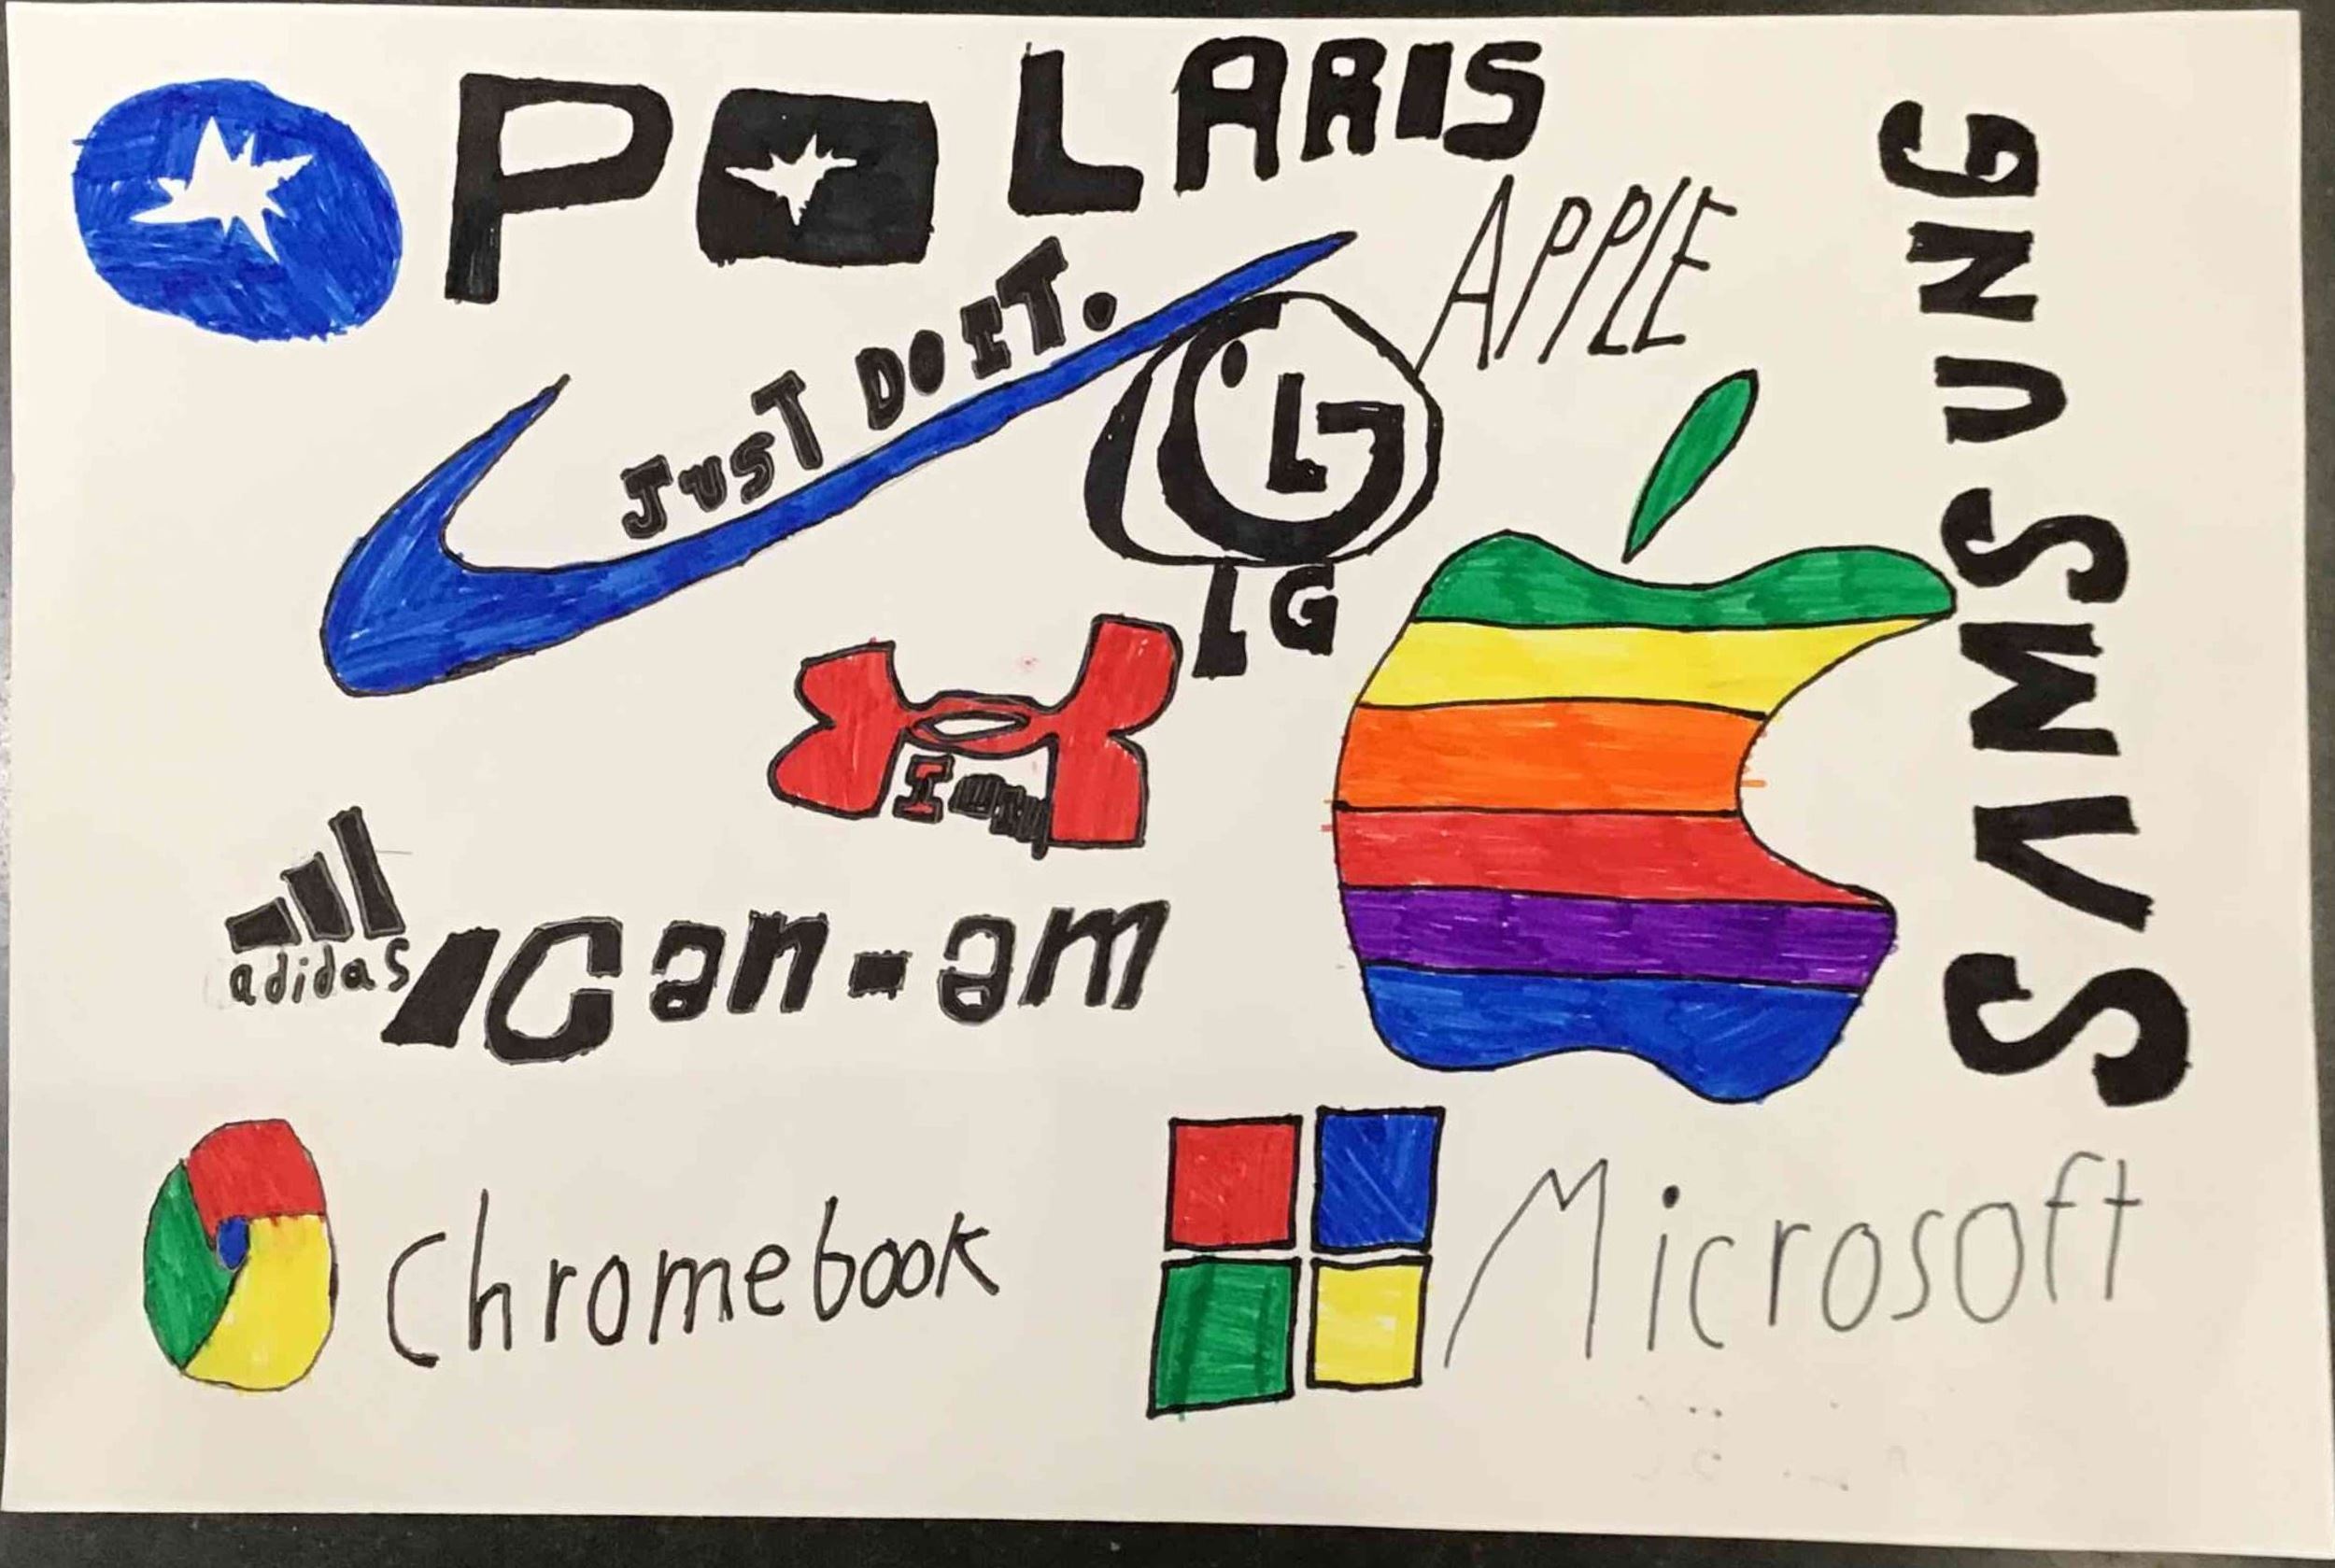 POLARIS
JUST DO IT.
APPLE
SAMSUNG
LG
LG
I
adidas
can-am
Chromebook
Microsoft